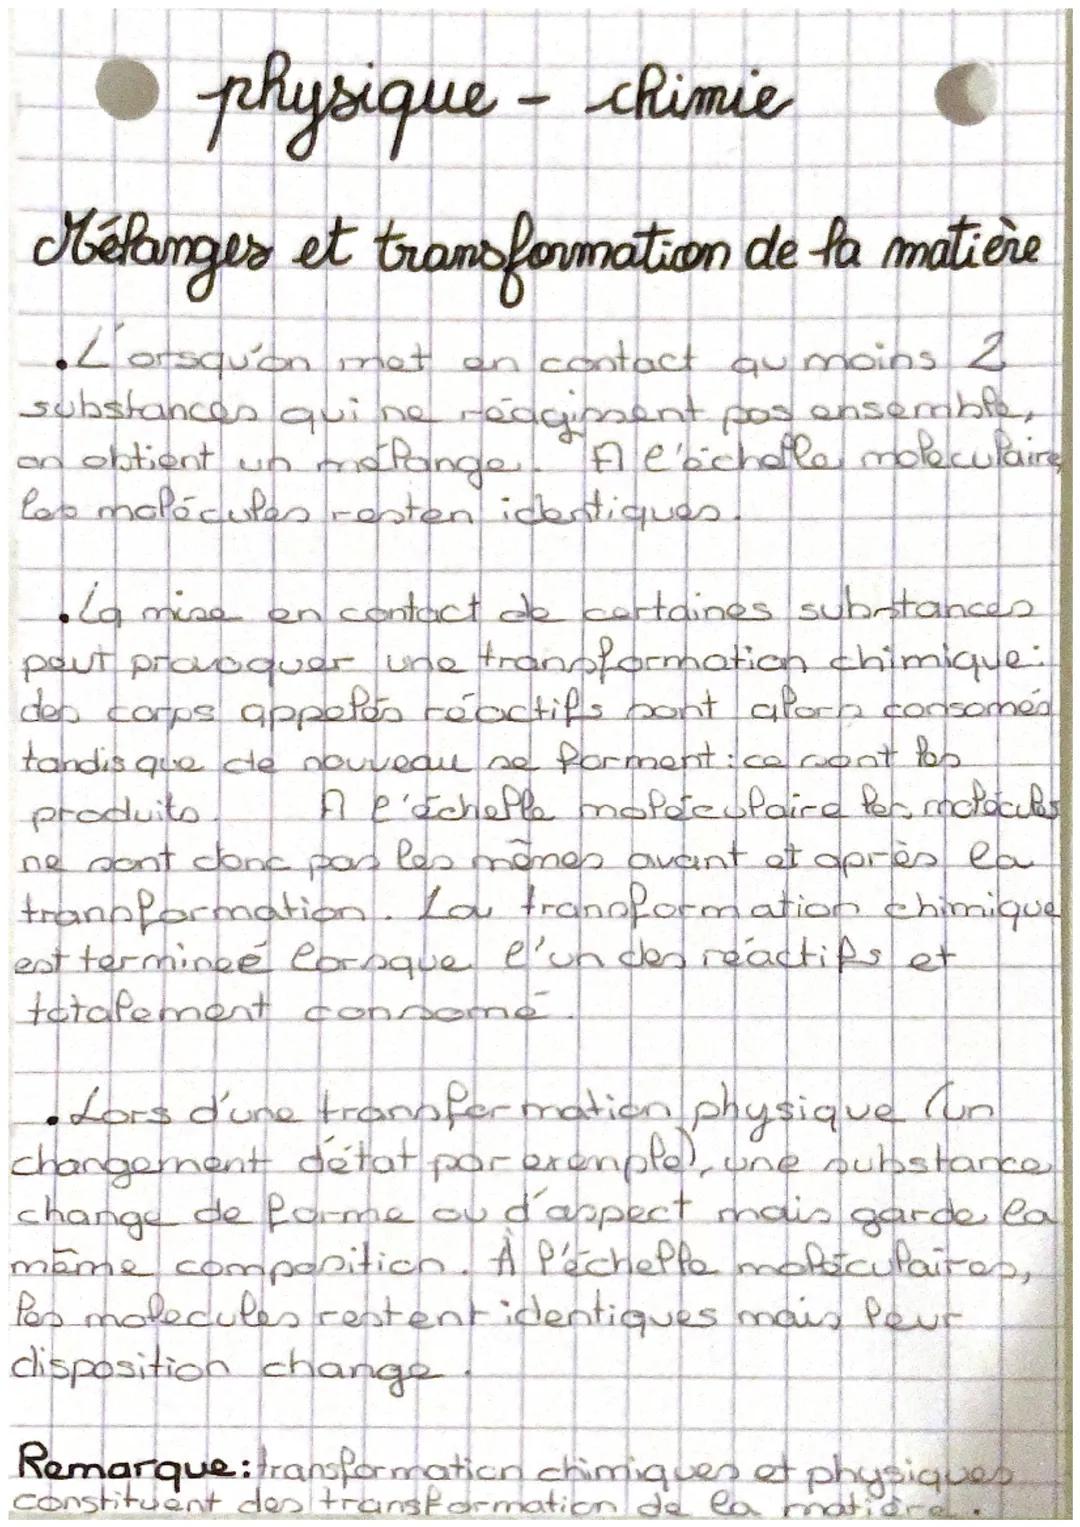 physique - chimie
Mélanges et transformation de la matière
. Lorsqu'on met en contact au moins 2
substances qui ne réagissent pas ensemble,
on obtient un mélange. A l'échelle moleculaire
les molécules resten identiques.
. La mise en contact de certaines substances
peut provoquer une transformation chimique:
des corps appelés réactifs sont alors consomés
tandis que de nouveau se forment : ce sont les
produits. A l'échelle moléculaire les molécules
ne sont donc pas les mêmes avant et après la
transformation. La transformation chimique
est termineé lorsque l'un des réactifs et
totalement consomé.
. Lors d'une transformation physique (un
changement d'état par exemple), une substance
change de forme ou d'aspect mais garde la
même composition. À l'échelle moléculaires,
les molecules restent identiques mais leur
disposition change.
Remarque: transformation chimiques et physiques
constituent des transformation de la matière.